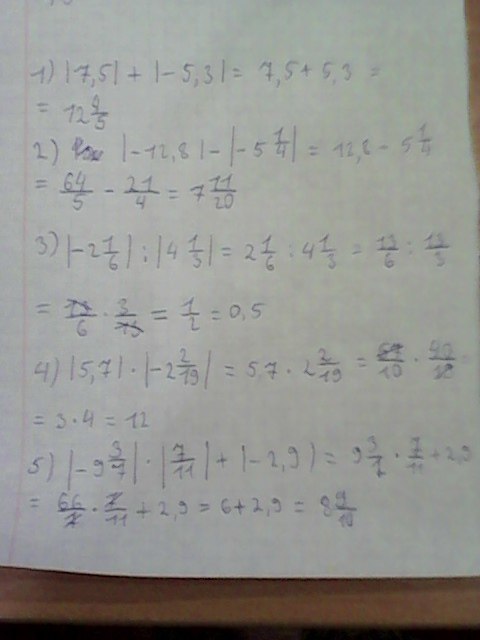 1) |-7,5| + |-5,3| = 7,5 + 5,3 =
= 12 4/5
2) |-12,8| - |-5 1/4| = 12,8 - 5 1/4
= 64/5 - 21/4 = 7 11/20
3) |-2 1/6| : |4 1/3| = 2 1/6 : 4 1/3 = 13/6 : 13/3
= 13/6 · 3/13 = 1/2 = 0,5
4) |5,7| · |-2 2/19| = 5,7 · 2 2/19 = 57/10 · 40/19
= 3 · 4 = 12
5) |-9 3/7| · |7/11| + |-2,9| = 9 3/7 · 7/11 + 2,9
= 66/7 · 7/11 + 2,9 = 6 + 2,9 = 8 9/10